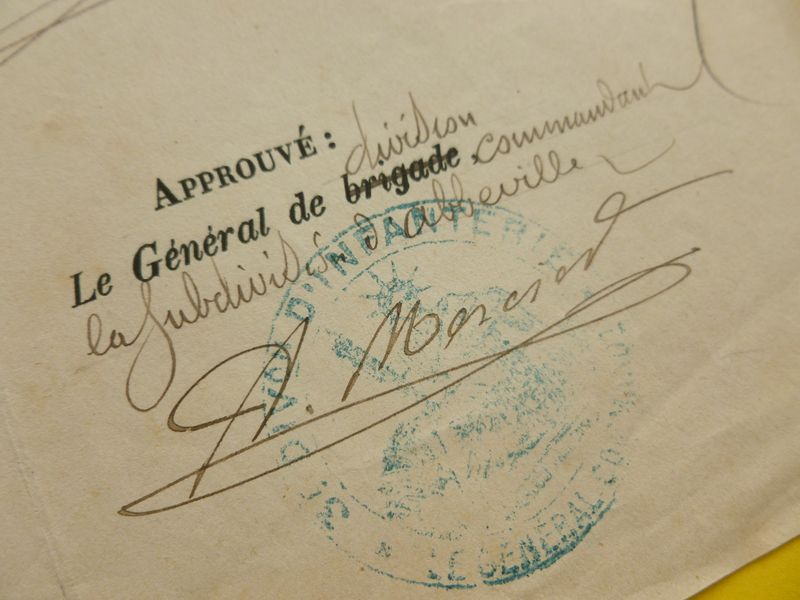 APPROUVÉ :
division
Le Général de brigade commandant
la Subdivision d'Abbeville
A. Mercier
DIVON D'INFANTERIE
LE GÉNÉRAL